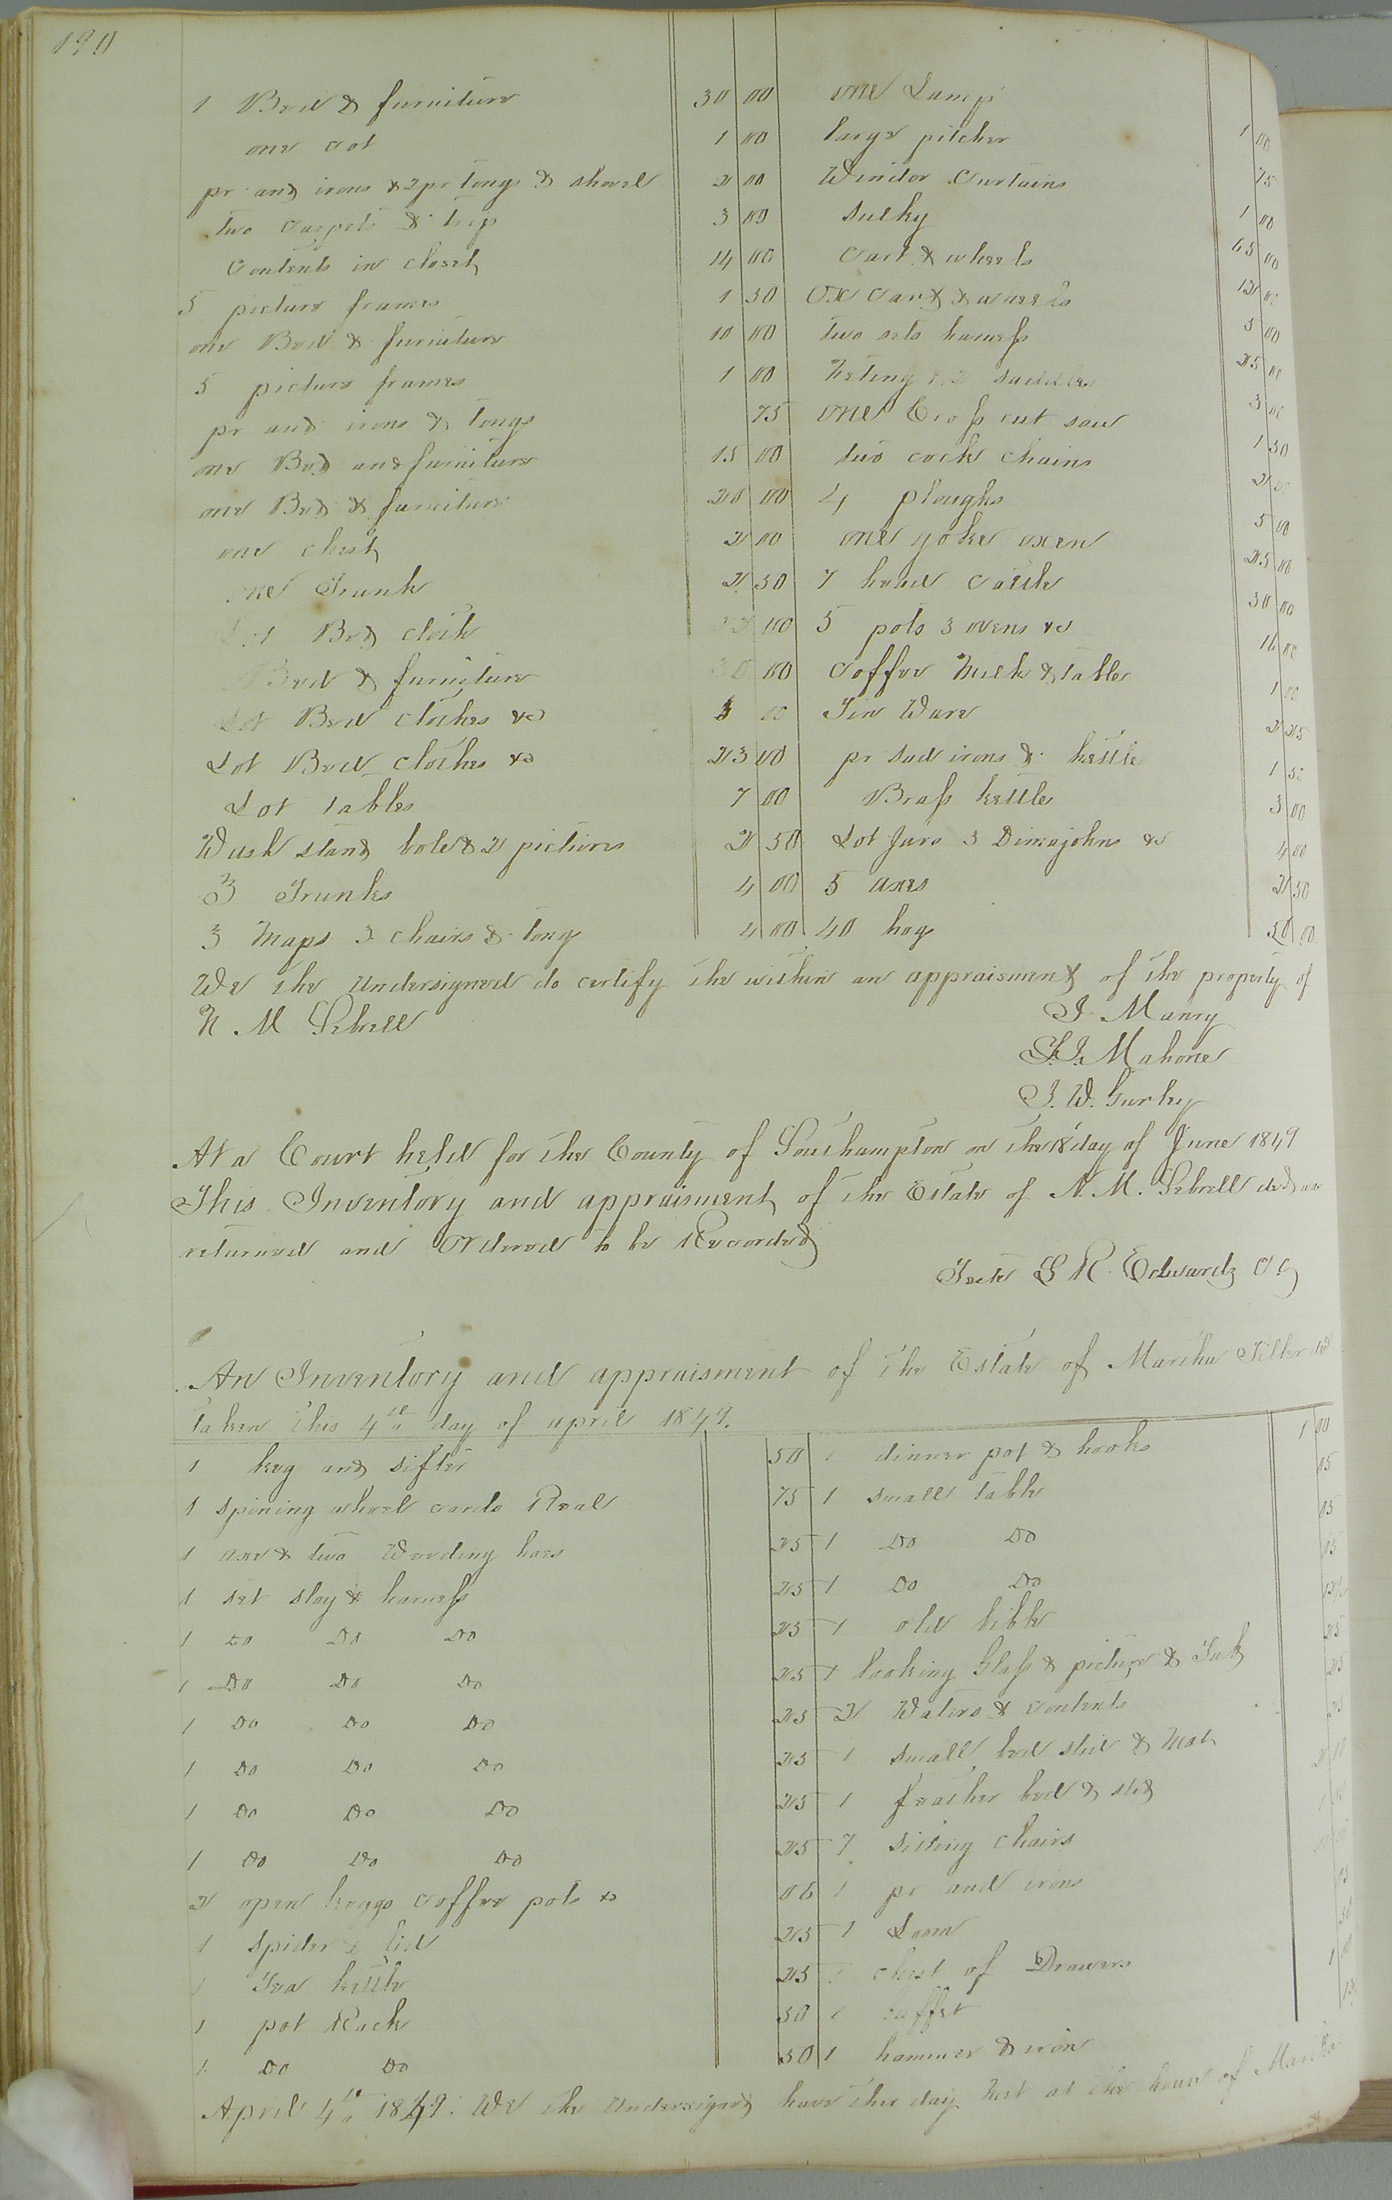 190
1 Bed & furniture 30 00
one cot 1 00
pr and irons & 2 pr tongs & shovel 2 00
two carpets & 3 00
Contents in closet 14 00
5 picture frames 1 50
one Bed & furniture 10 00
5 picture frames 1 00
pr and irons & tongs 75
one Bed and furniture 15 00
one Bed & furniture 20 00
one chest 2 00
one Trunk 2 50
Lot Bed cloth 00
Bed & furniture 00
Lot Bed clothes &c 3 00
Lot Bed clothes &c 23 00
Lot tables 7 00
Wash stand bole & 2 pictures 2 50
3 Trunks 4 00
3 Maps 3 chairs & tongs 4 00
one Lamp 1 00
large pitcher 75
Window Curtains 1 00
Sulky 65 00
Cart & wheels 12 00
Ox Cart & wheels 5 00
two sets harness 25 00
& 2 saddles 3 00
one Cross cut saw 1 50
two cock chains 2 00
4 ploughs 5 00
one yoke oxen 25 00
7 head Cattle 30 00
5 pots 3 ovens &c 16 00
Coffee Mill & tables 1 00
Tin Ware 2 25
pr sad irons & kettle 1 50
Brass kettle 3 00
Lot Jars 3 Dimajohns &c 4 00
5 axes 2 50
40 hogs 50 00
We the undersigned do certify the within an appraisment of the property of
N M Sebrell
J. Manry
S. J. Mahone
J. W. Gurley
At a Court held for the County of Southampton on the 18 day of June 1849
This Inventory and appraisment of the Estate of N. M. Sebrell decd was
returned and Ordered to be Recorded
Teste L R Edwards CC
An Inventory and appraisment of the Estate of Martha Tiller decd
taken this 4th day of april 1849.
1 keg and sifter 50
1 spining wheel cards Real 75
1 axe & two Weeding hoes 25
1 set slay & harness 25
1 Do Do Do 25
1 Do Do Do 25
1 Do Do Do 25
1 Do Do Do 25
1 Do Do Do 25
1 Do Do Do 25
2 open keggs coffee pots &c 06
1 spider & lid 25
1 Tea kettle 25
1 pot Rack 50
1 Do Do 50
1 dinner pot & hooks 1 00
1 small table 15
1 Do Do 15
1 Do Do 15
1 old bible
1 looking Glass & picture & Tub 25
2 Waters & contents 25
1 small bed stid & Mat 25
1 feather bed & sted
7 sitting chairs
1 pr and irons
1 Loom
1 chest of Drawers
1 buffet 1 00
1 hammer & iron
April 4th 1849. We the undersigned have this day Met at the house of Martha